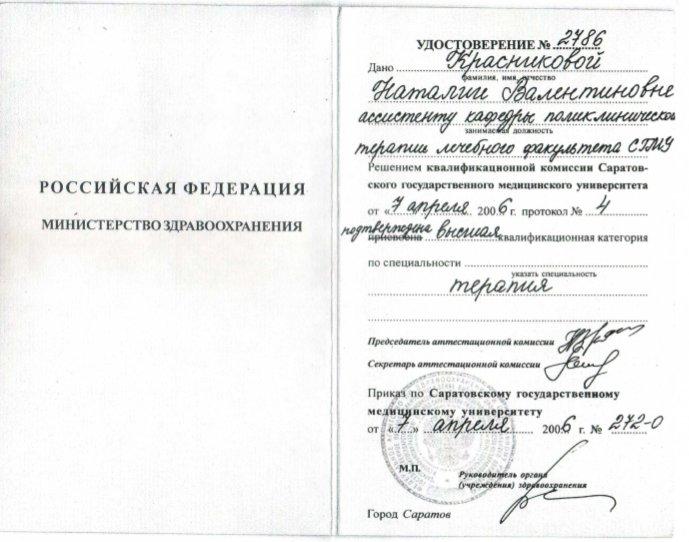 РОССИЙСКАЯ ФЕДЕРАЦИЯ
МИНИСТЕРСТВО ЗДРАВООХРАНЕНИЯ
УДОСТОВЕРЕНИЕ № 2786
Дано Красниковой
фамилия, имя, отчество
Наталии Валентиновне
ассистенту кафедры поликлинической
занимаемая должность
терапии лечебного факультета СГМУ
Решением квалификационной комиссии Саратов-
ского государственного медицинского университета
от «7 апреля 2006 г. протокол № 4
подтверждена
присвоена высшая квалификационная категория
по специальности
указать специальность
терапия
Председатель аттестационной комиссии
Секретарь аттестационной комиссии
Приказ по Саратовскому государственному
медицинскому университету
от «7» апреля 2006 г. № 272-О
М.П.
Руководитель органа
(учреждения) здравоохранения
Город Саратов